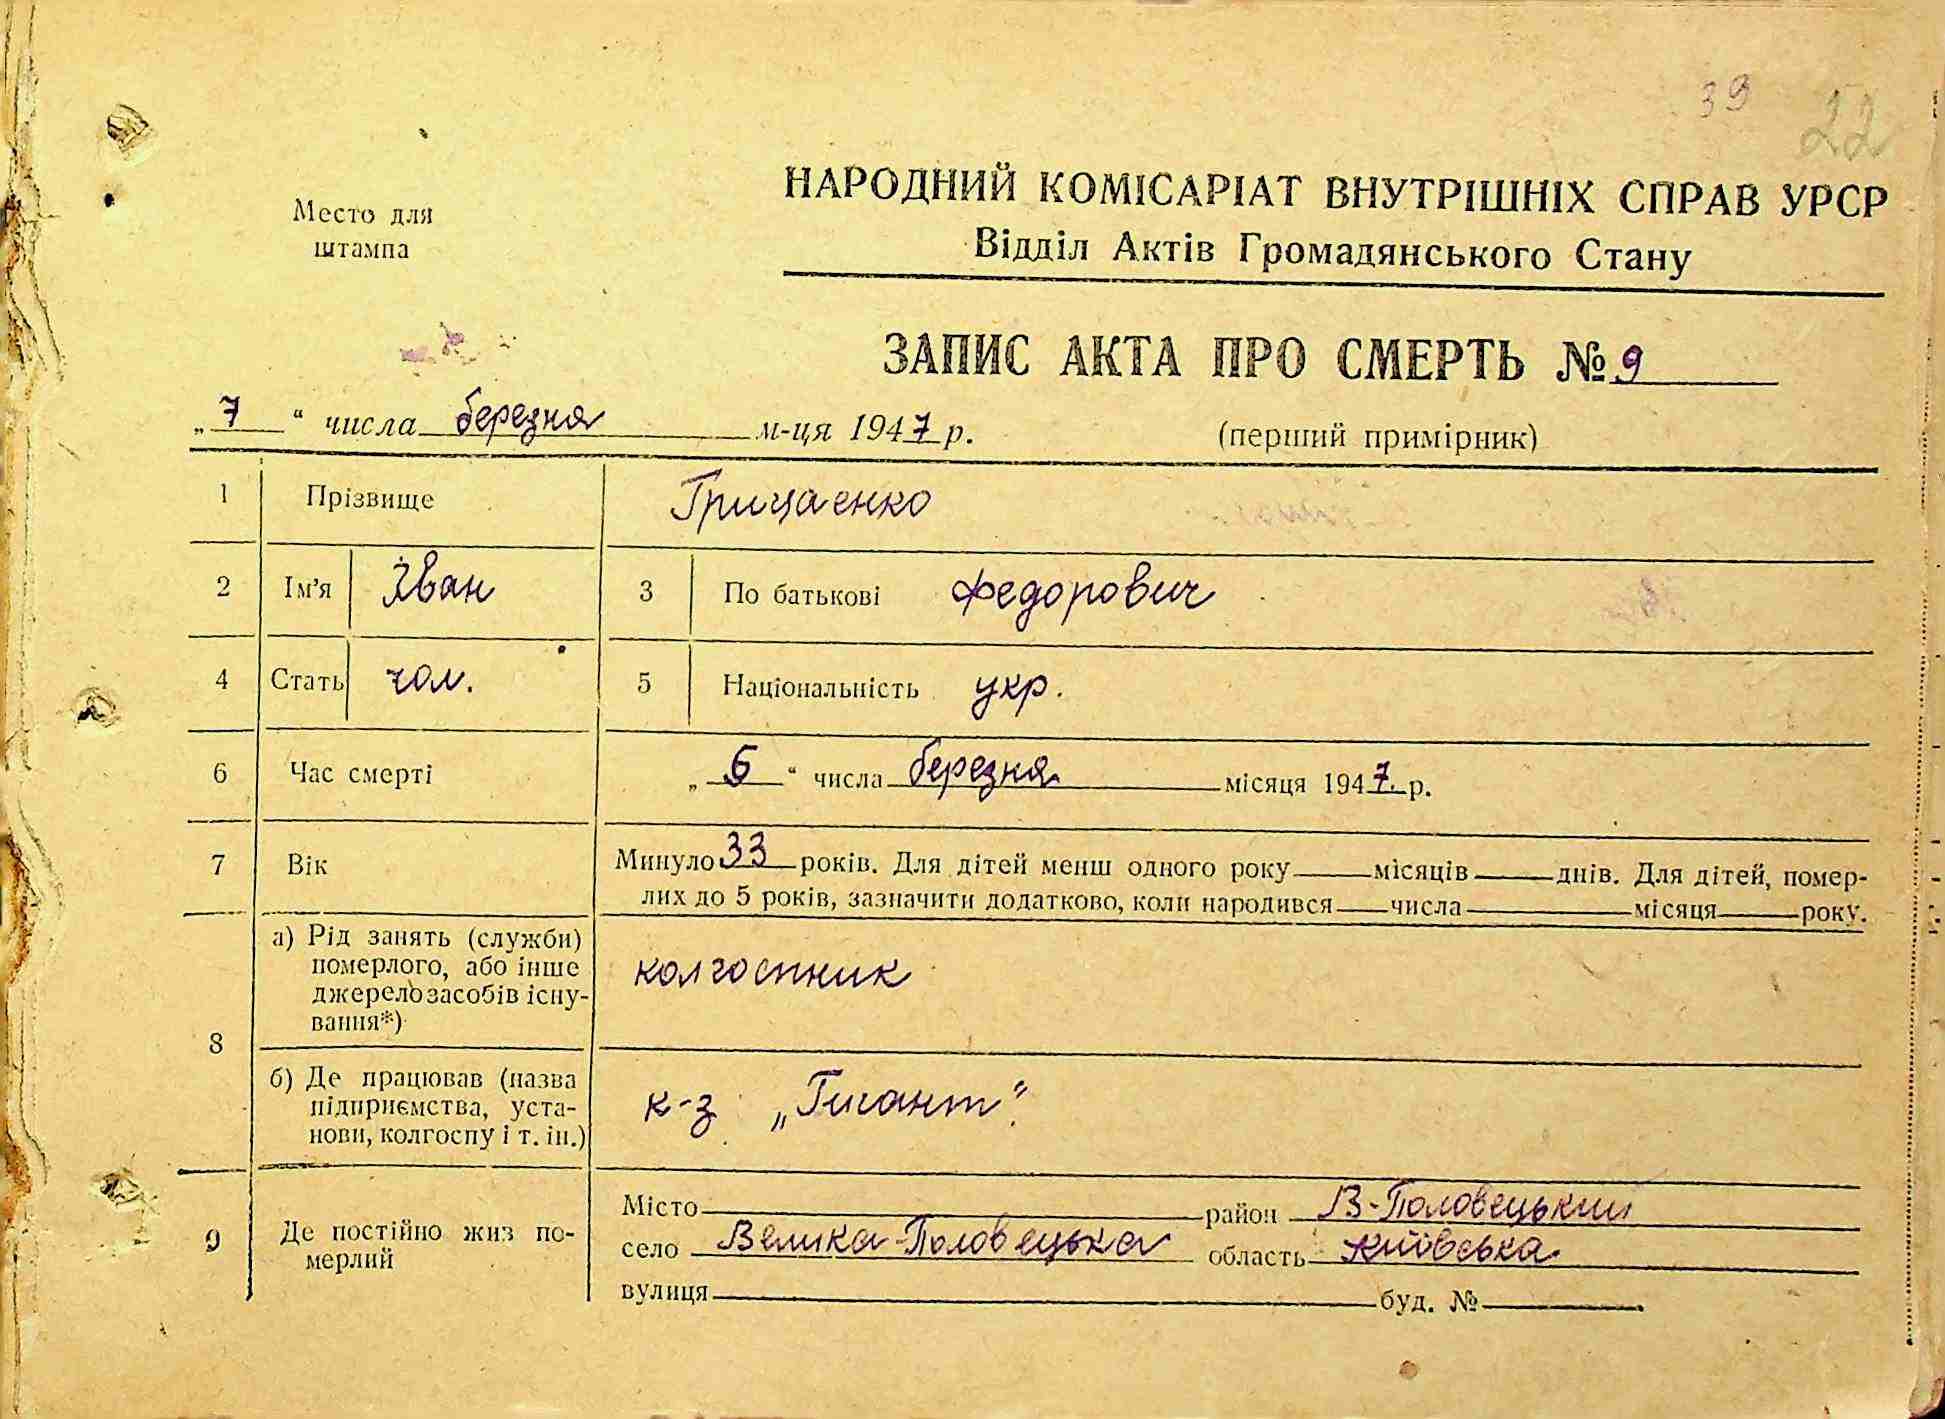 39 22
Место для
штампа
НАРОДНИЙ КОМІСАРІАТ ВНУТРІШНІХ СПРАВ УРСР
Відділ Актів Громадянського Стану
ЗАПИС АКТА ПРО СМЕРТЬ № 9
„7“ числа березня м-ця 1947 р. (перший примірник)
1 Прізвище Грицаенко
2 Ім'я Іван 3 По батькові Федорович
4 Стать чол. 5 Національність укр.
6 Час смерті „6“ числа березня місяця 1947 р.
7 Вік Минуло 33 років. Для дітей менш одного року місяців днів. Для дітей, помер-
лих до 5 років, зазначити додатково, коли народився числа місяця року.
8 а) Рід занять (служби)
померлого, або інше
джерело засобів існу-
вання*)
колгоспник
б) Де працював (назва
підприємства, уста-
нови, колгоспу і т. ін.)
к-з „Гигант“
9 Де постійно жив по-
мерлий
Місто район В-Половецький
село Велика-Половецька область Київська
вулиця буд. №